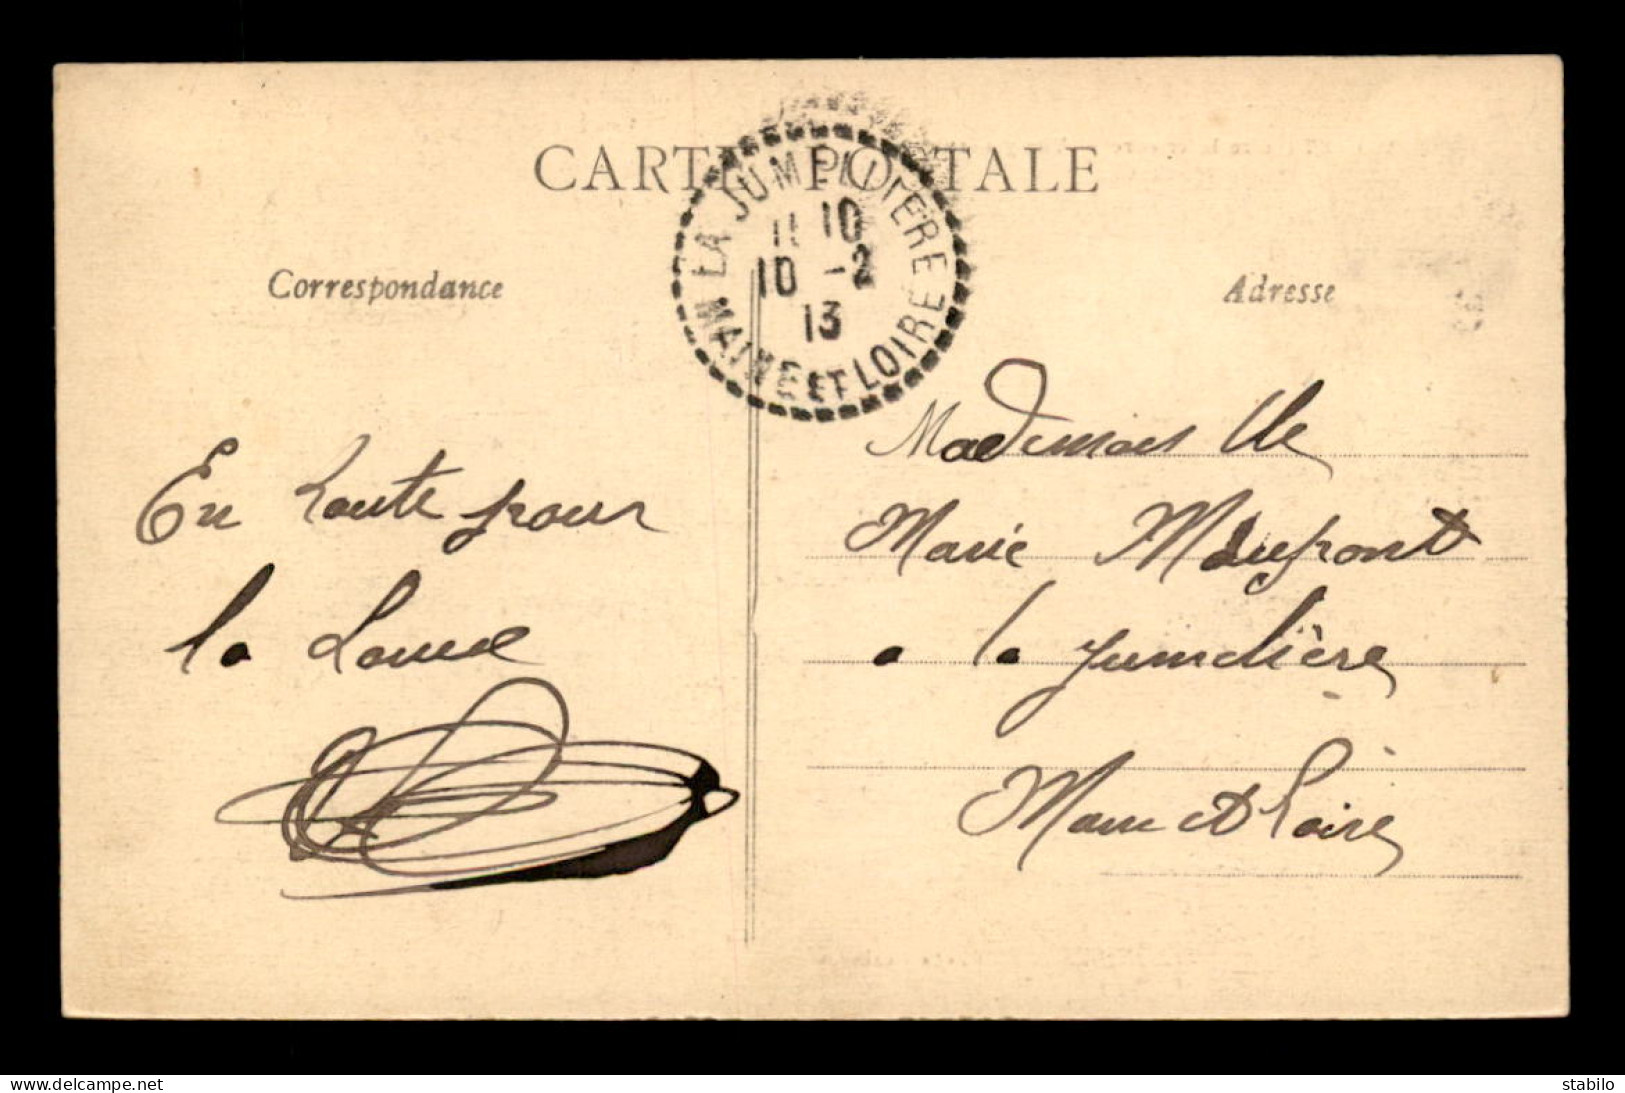 CARTE POSTALE
LA JUMELLIERE
11 10
10 - 2
13
MAINE ET LOIRE
Correspondance
Adresse
En route pour
la
Mademoiselle
Marie Maupont
a la Jumelière
Maine et Loire
www.delcampe.net
stabilo